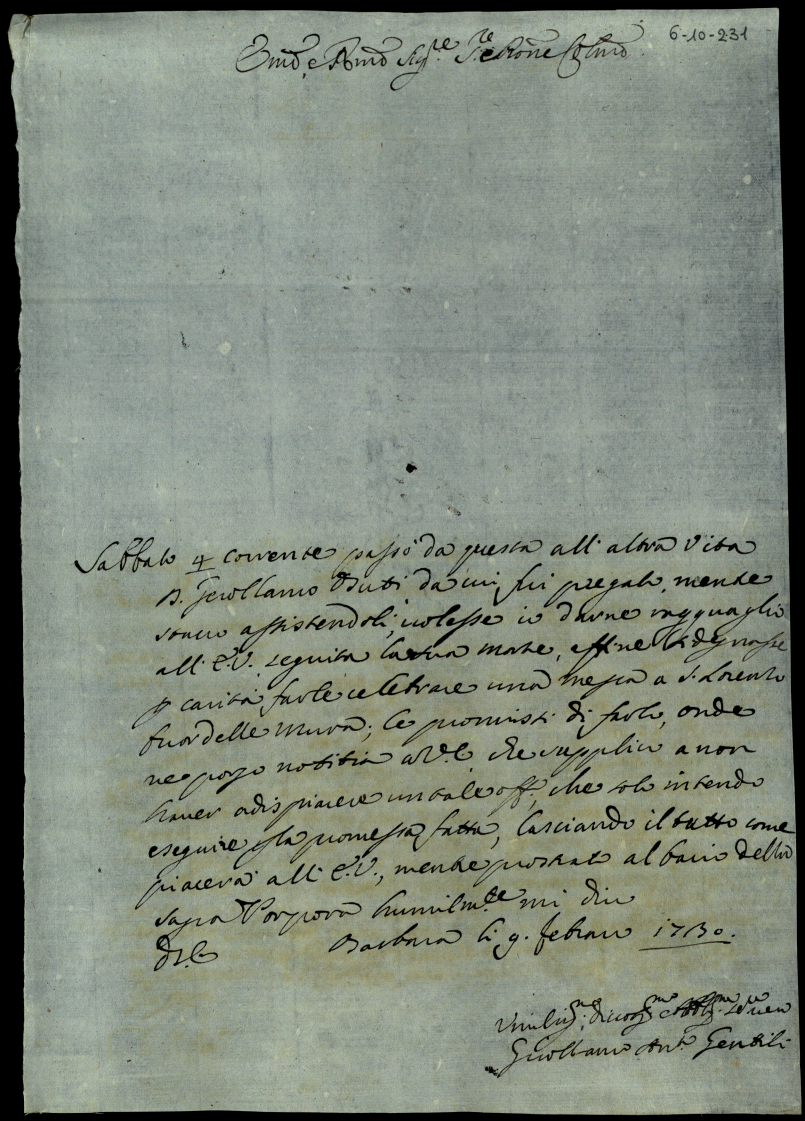 6-10-231
Em.o e Rmo Sig.re P.rone Colmo
Sabbato 4 corrente passò da questa all'altra vita
D. Girollamo Buti da cui fui pregato, mentre
stavo assistendoli, volesse io darne ragguaglio
all'E.V. seguita la sua morte, affine si degnasse
p carità farle celebrare una messa a S. Lorenzo
fuor delle mura; le promisi di farlo, onde
ne porgo notitia a V.E. che supplico a non
haver a dispiacere un tale off.o, che solo intendo
eseguire p la promessa fatta, lasciando il tutto come
piacerà all'E.V., mentre prostrato al bacio della
sagra Porpora humilm.te mi dico
D.V.E. Barbara li 9. febraro 1730.
Umiliss.mo, divotiss.mo e Obblig.mo Ser.re vero
Girollamo Ant.o Gentili